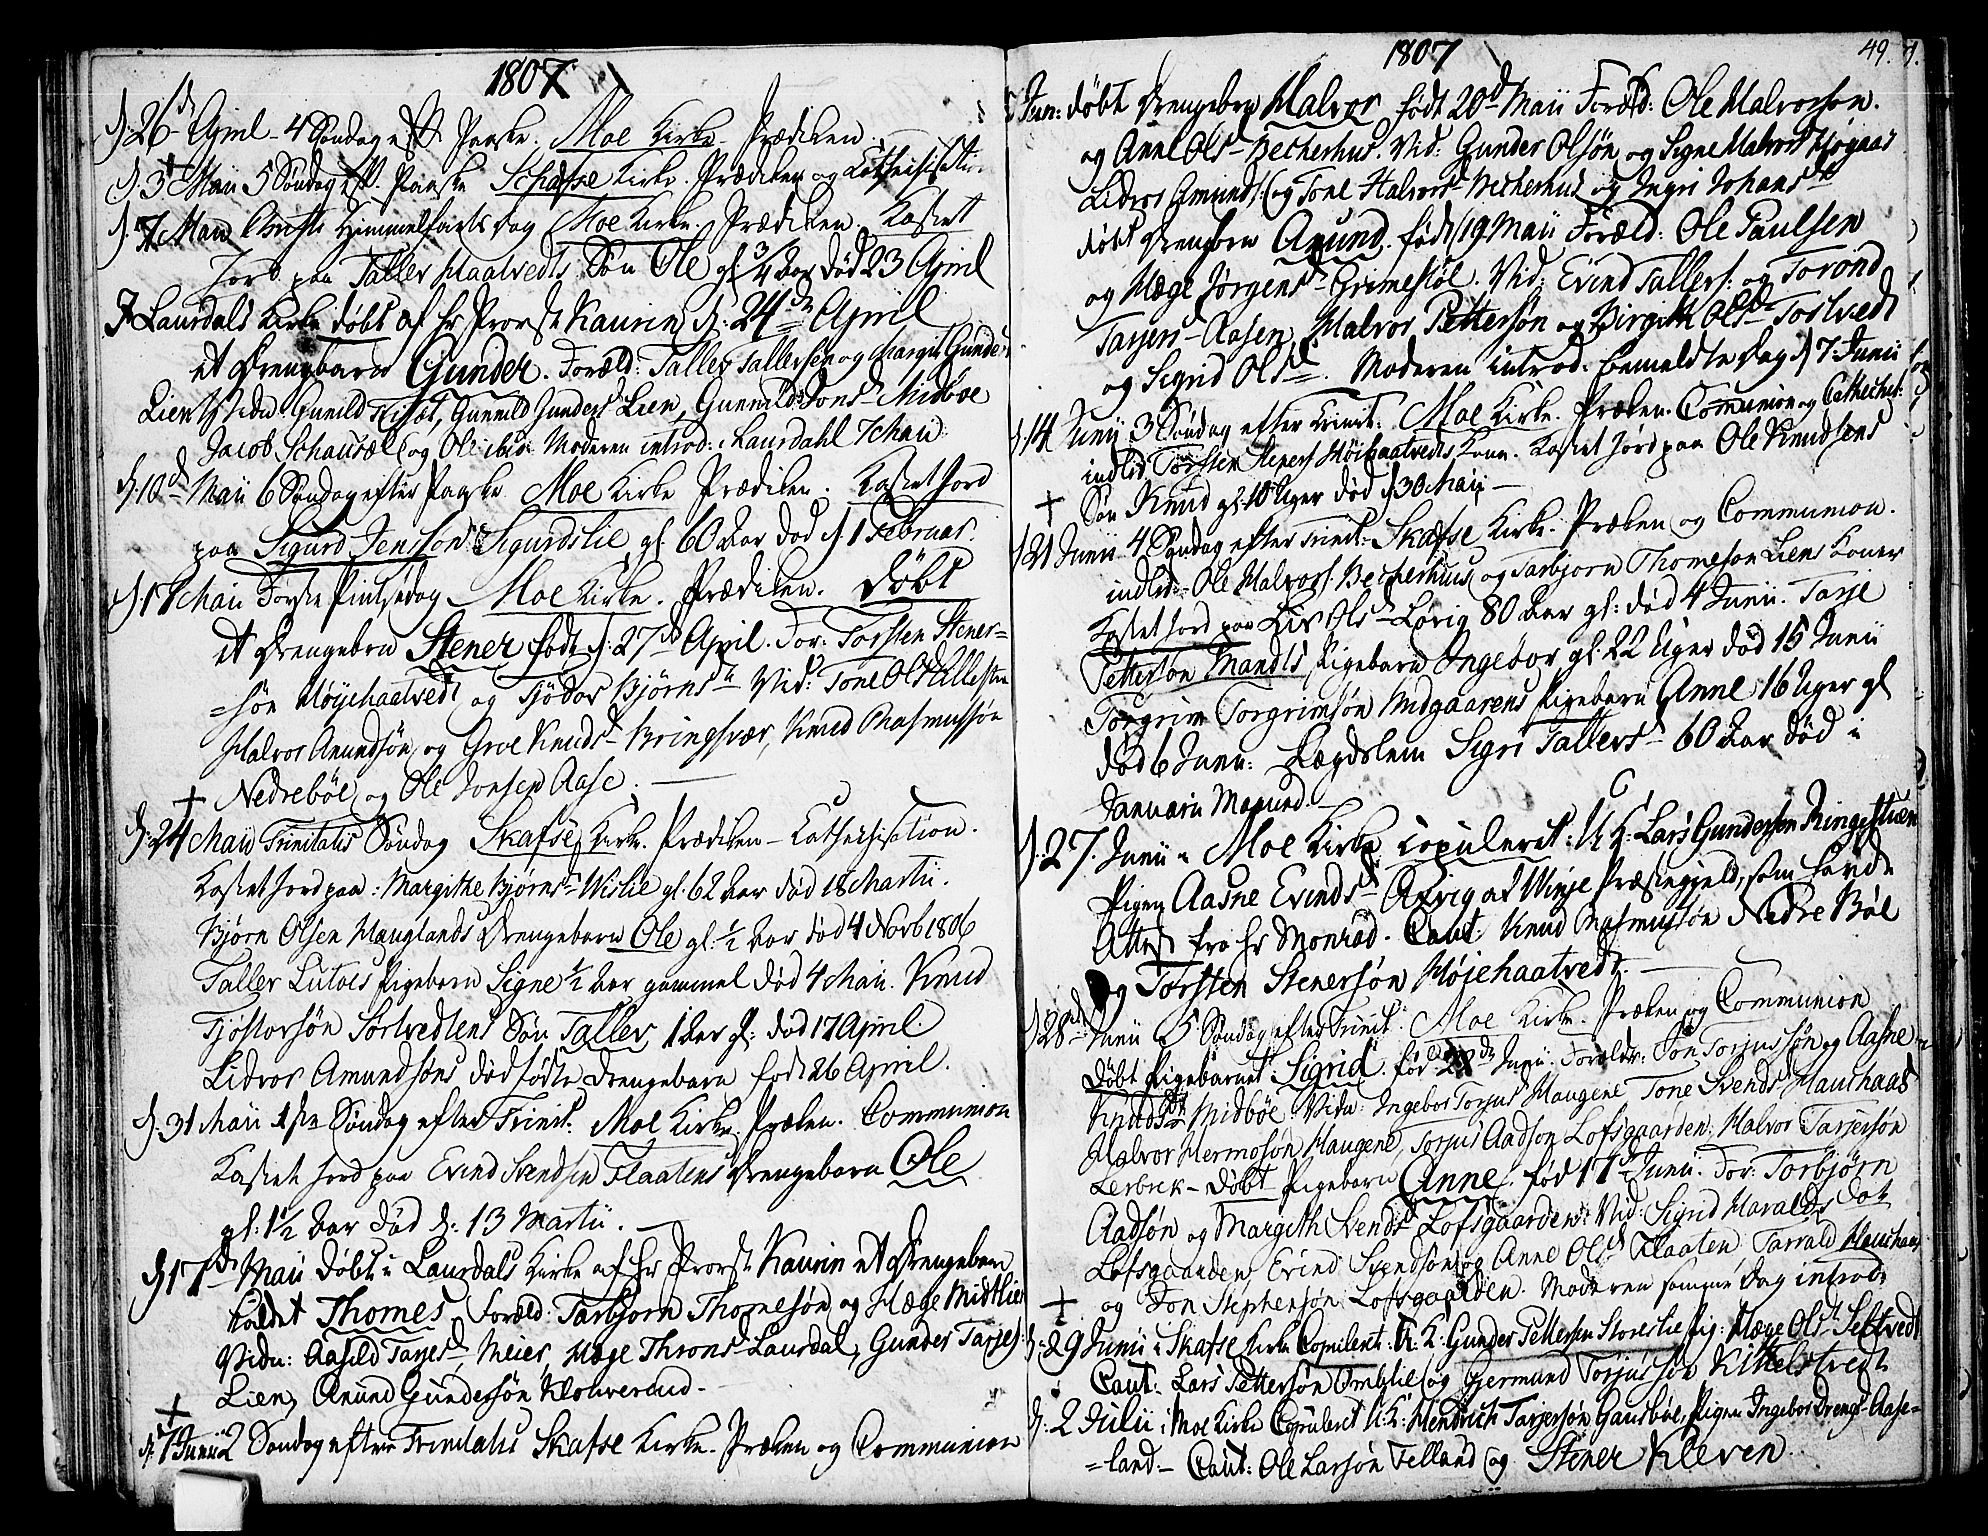 1807
d. 26de April 4 Søndag eft. Paaske. Moe Kirke. Prædiken.
d. 3 Maii 5 Søndag eft. Paaske Schafse Kirke. Prædiken og Cathechisation
d. 7 Maii Christi Himmelfarts dag Moe Kirke. Prædiken. Kastet
Jord paa Taller Haatvedts Søn Ole gl. 3/4 Aar død 23 April
I Laurdals Kirke døbt af Hr Provst Kaurin d: 24de April
et Drengebarn Gunder. Foræld: Taller Tallersen og Margit Gunders
Lien Vidn: Gunild, Gunnild Gunders Lien, Gunnild Jons Midbøe
Jacob Schausæl og Ole ibid: Moderen introd: i Laurdahl
d. 10de Maii 6 Søndag efter Paaske Moe Kirke Prædiken. Kastet Jord
paa Sigurd Jensson Sigurdslie gl. 60 Aar død d. 1 Februar.
d. 17 Maii Første Pintsedag Moe Kirke. Prædiken. Døbt
et Drengebrn Stener født d. 27de April. For: Torsten Stener=
=søn Høyehaatvedt og Tjødor Bjørnsd. Vid: Tone Olsd
Halvor Amundsøn og Groe Knudsd Bringsvær, Knud Rasmussøn
Nedrebøe og Ole Jonsen Aase.
d. 24 Maii Trinitatis Søndag Skafse Kirke. Prædiken - Cathechisation.
Kastet Jord paa: Margithe Bjørnsd Wislie gl. 62 Aar død 18 Martii.
Bjørn Olsen Hauglands Drengebarn Ole gl. 1/2 Aar død 4 Novb 1806
Taller Lutoes Pigebarn Signe 1/2 Aar gammel død 4 Maii. Knud
Tjøstorsøn Tortvedtens Søn Taller 1 Aar gl: død 17 April.
Lidvor Amundsøns dødfødte Drengebarn født 26 April.
d. 31 Maii 1ste Søndag efter Trinit: Moe Kirke. Præken. Communion
Kastet Jord paa Evind Svendsen Flaatens Drengebarn Ole
gl. 1 1/2 Aar død d: 13 Martii.
d. 17de Maii døbt i Laurdals Kirke af Hr Provst Kaurin et Drengebarn
kaldet Thomes Foræld: Tarbjorn Thomesøn og Hæge Midtlien
Vidn: Aasild Tarjesd Meier, Hæge Throns Laurdal, Gunder Tarjes
Lien, Anund Gundersøn
d. 7 Junii 2 Søndag efter Trinitatis Skafse Kirke. Præken og Communion
1807
49.
Jun: døbt Drengebrn Halvor født 20de Maii Foræld: Ole Halvorsøn.
og Anne Olsd Becherhus. Vid: Gunder Olsøn og Signe Halvorsd
Lidvor Amunds: og Tone Halvorsd Becherhus og Ingri Johansd
døbt Drengebrn Anund. født 19 Maii Foræld: Ole Paulsen
og Hæge Jørgensd Grimestøl. Vid: Evind Tallers: og Torond
Tarjers Aasen, Halvor Pettersøn og Birgith Olsd Tortvedt
og Sigrid Olsd. Moderen introd. bemeldte Dag d 7. Junii
d. 14 Junii 3 Søndag efter Trinit: Moe Kirke. Præken. Communion og Cathechis:
indled: Torsten Steners Høiehaatvedts Kone. Kastet Jord paa Ole Knudsens
Søn Knud gl. 10 Uger død d 30 Maii
d. 21 Junii 4 Søndag efter Trinit: Skafse Kirke. Præken og Communion.
indled: Ole Halvors: Becherhus og Tarbjorn Thomesøn Liens Koner
Kastet Jord paa Liv Olsd Lovig 80 Aar gl: død 4 Junii. Tarje
Pettersøn Mandts Pigebarn Ingebor gl. 22 Uger død 15 Junii
Torgrim Torgrimsøn Midgaarens Pigebarn Anne 16 Uger gl
død 6 Junii: Lægdslem Sigri Tallersd 60 Aar død i
Januarii Maaned.
d. 27. Junii i Moe Kirke Copuleret: U. K: Lars Gundersen Ringestuen
Pigen Aasne Evindsd Axvig af Winje Præstegjeld, som havde
Attest fra Hr Monrad. Caut: Knud Rasmussøn Nedre Bøe
og Torsten Stenersøn Høiehaatvedt.
d. 28de Junii 5 Søndag efter Trinit: Moe Kirke. Præken og Communion
Døbt Pigebarnet Sigrid. fød Junii. Foræld: Jon Torjussøn og Aasne
Knudsd Midbøe. Vidn: Ingebor Torjus Haugene Tone Svendsd Hauchaas
Halvor Hermosøn Haugene, Torjus Aadsøn Lofsgaarden. Halvor Tarjersøn
Lerbrek - Døbt Pigebarn Anne. fød 17de Junii. For: Torbjørn
Aadsøn og Margith Svendsd Lofsgaarden: Vid: Sigrid Haralds Dok
Lofsgaarden, Evind Svendsøn og Anne Olsd Flaaten Tarrald Hauchaas
og Jon Stephensøn Lofsgaarden. Moderen samme Dag introd.
d. 29 Junii i Skafse Kirke Copuleret: U. K: Gunder Pettersen Storeslie Pig: Hæge Olsd Seltvedt
Caut: Lars Pettersøn og Gjermund Torjussøn Kittelstvedt
d. 2 Julii i Moe Kirke Copuleret U. K: Hendrich Tarjersøn Gausbøe, Pigen Ingebor Drengs Aase=
=land. Caut: Ole Larsøn Felland og Stener Kleven.